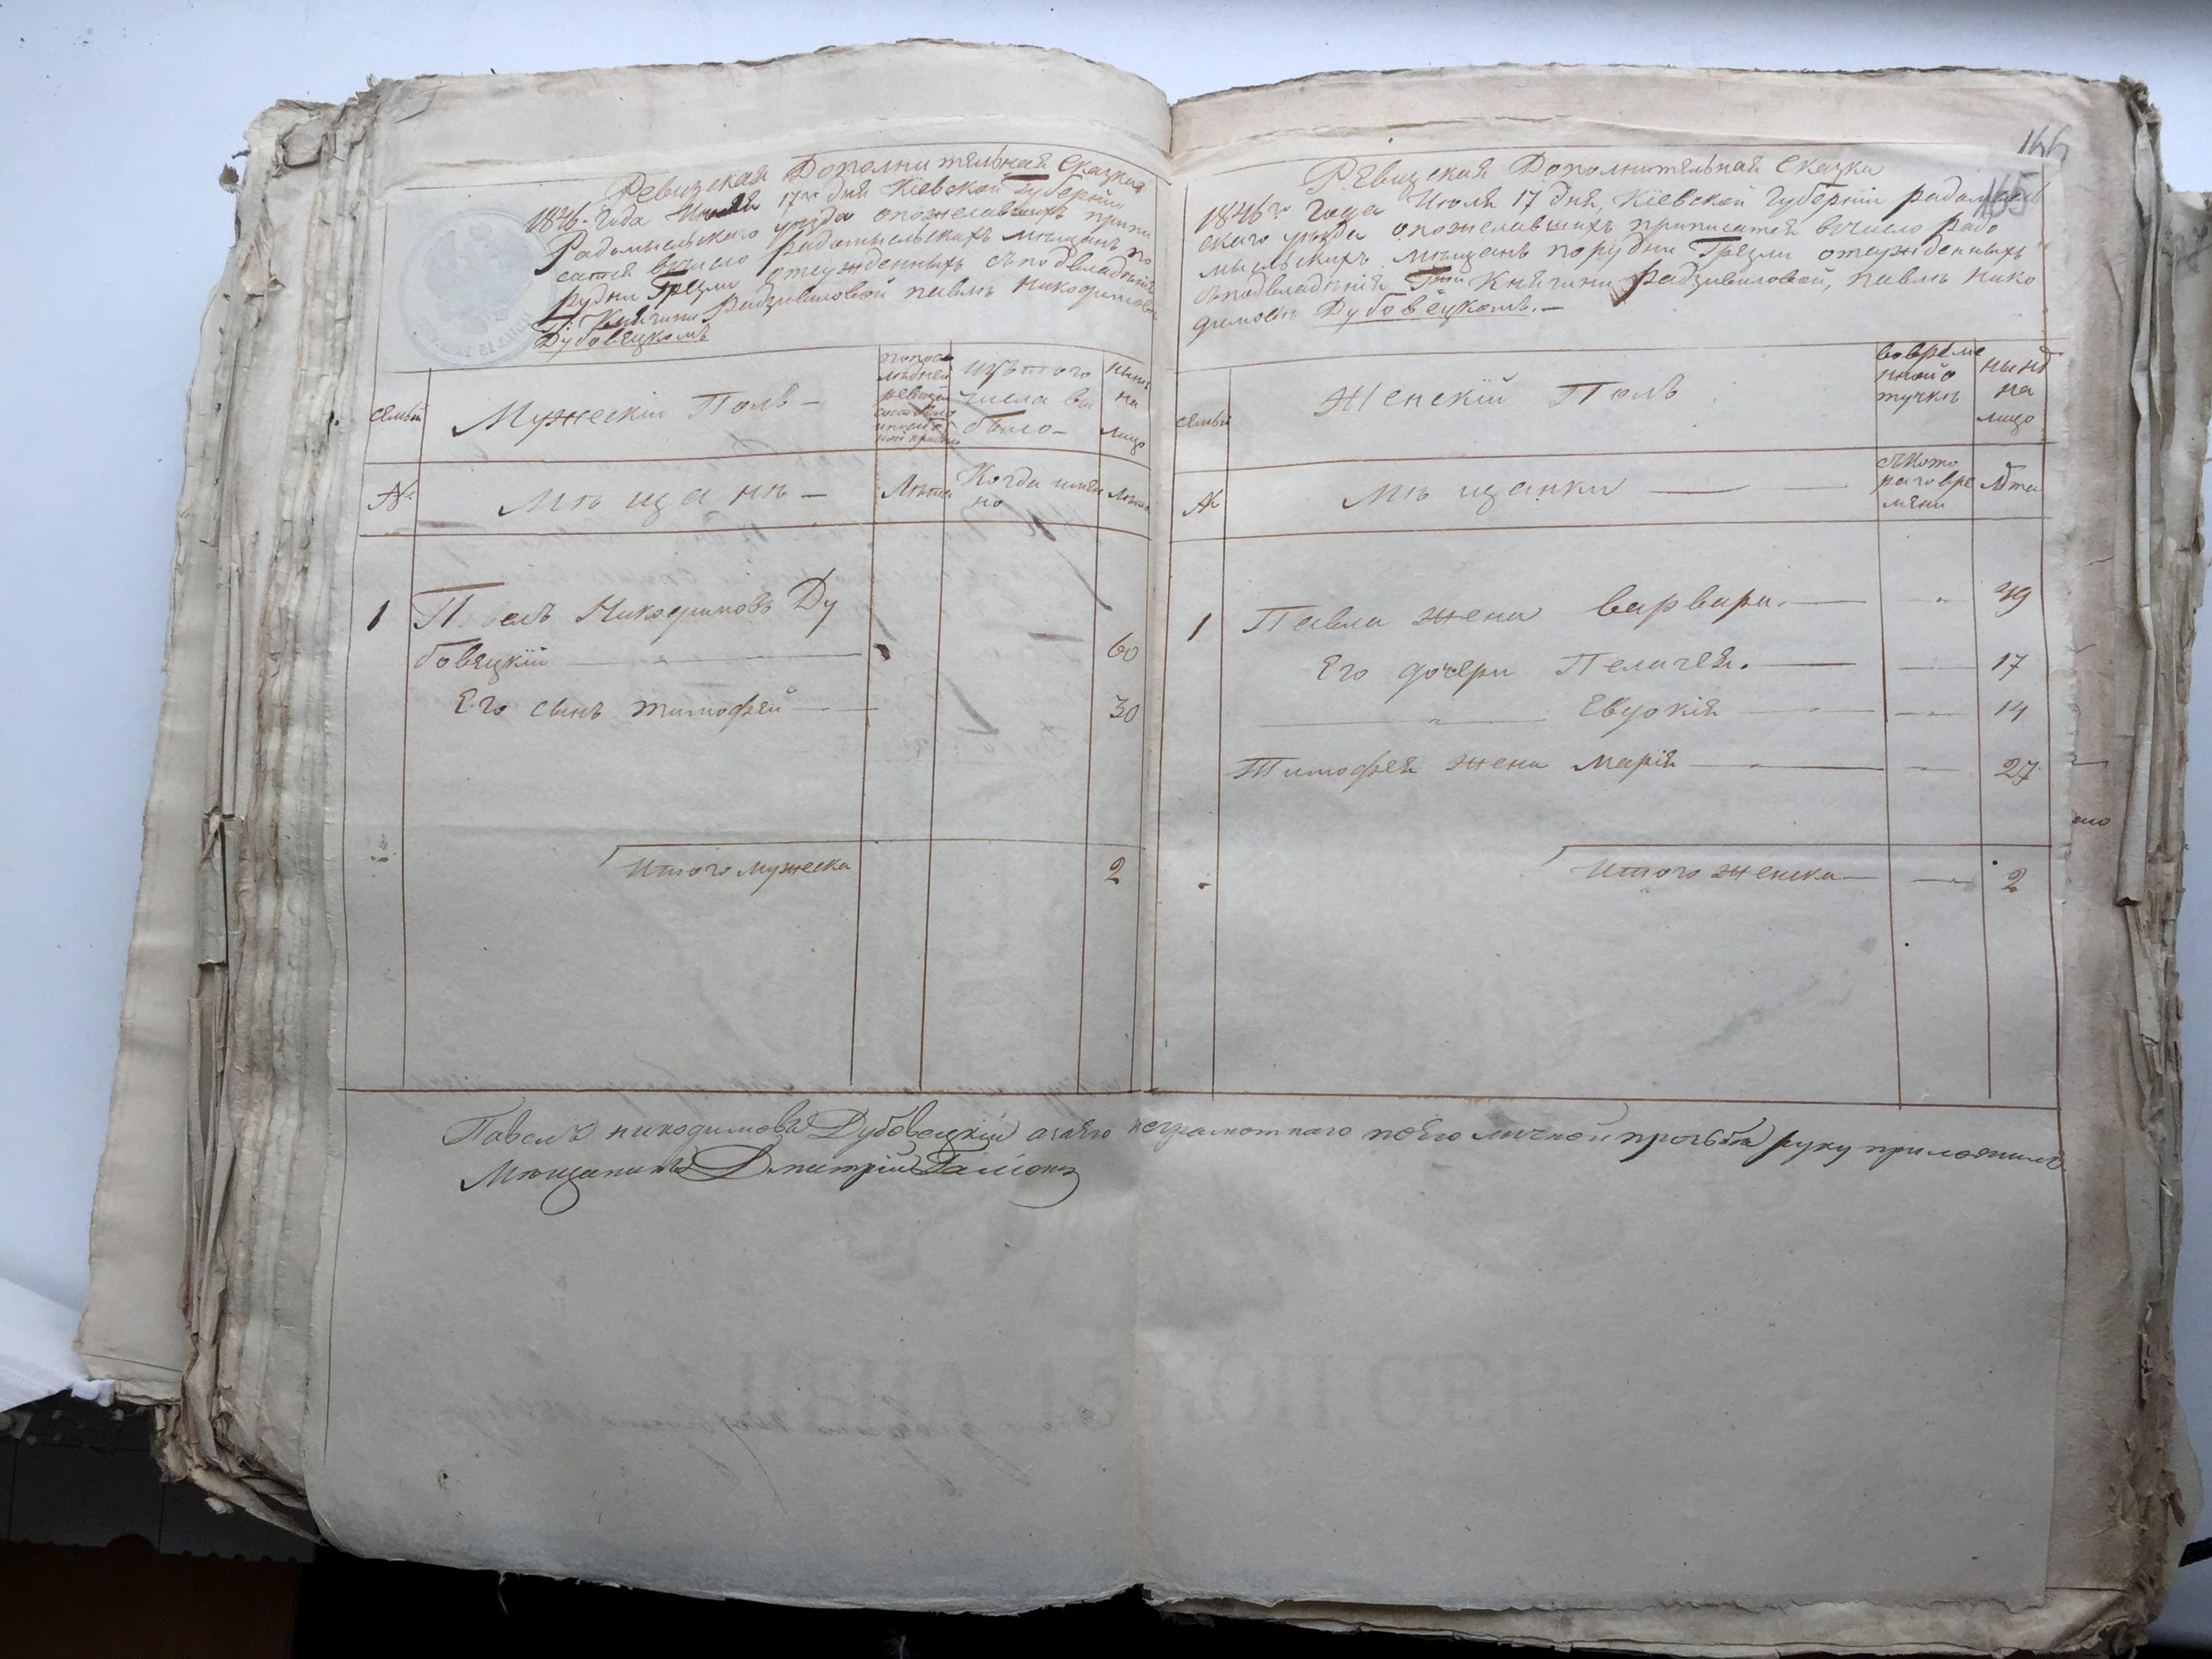 Ревизская Дополнительная Сказка
1846 года Июля 17го дня Кіевской Губерніи
Радомысльскаго уѣзда опожелавшихъ припи
сатся вчисло радомысльскихъ мѣщанъ по
рудни Грезли отсужденныхъ съподвладѣнія
Княгини Радзивиловой павлѣ Никодимовѣ
Дубовецкомъ
семьи
Мужескій Полъ —
попос
лѣдней
ревизіи
состояло
изътого
числа вы
было —
нынѣ
на
лицо
№
Мѣщанѣ —
Лѣта
Когда имен
но
Лѣта
1
Павелъ Никодимовъ Ду
бовецкій
60
Его сынъ тимофей
30
Итого мужеска
2
166
165
Ревизская Дополнительная Сказка
1846го Года Июля 17 дня, Кіевской Губерніи радомысль
скаго уѣзда опожелавшихъ приписатся вчисло Радо
мысльскихъ мѣщанъ порудни Грезли отсужденныхъ
съподвладѣнія Гжи Княгини Радзивиловой, павлѣ Нико
димовѣ Дубовецкомъ. —
семьи
Женскій Полъ
вовреме
нной о
тлучкѣ
нынѣ
на
лицо
№
Мѣщанки
съкото
раго вре
мени
Лѣта
1
Павла жена варвара.
49
Его дочери Пелагея.
17
Евдокія
14
Тимофея жена марія
27
Итого женска
2
Павелъ никодимовъ Дубовецкій азаего неграмотнаго поего личной прозьбѣ руку приложилъ
Мѣщанинъ Дмитрій